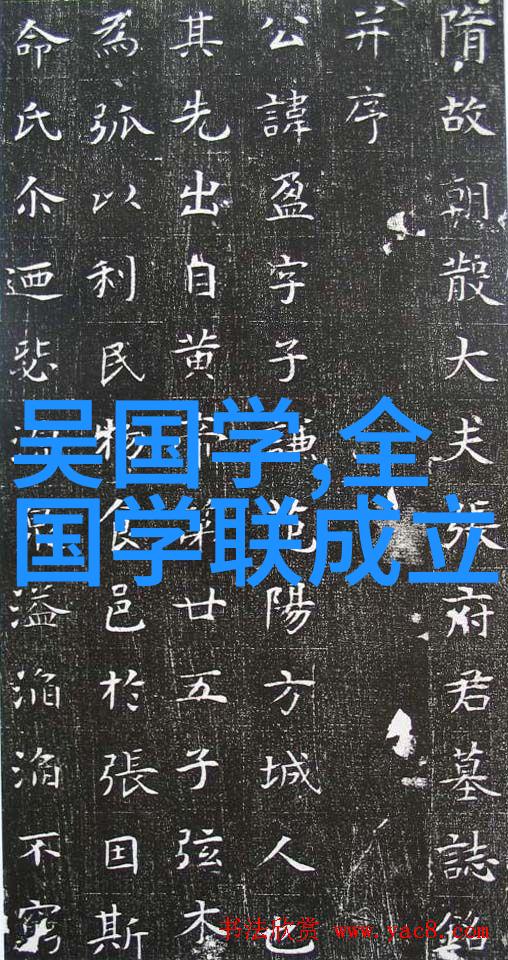 隋故朝散大夫張府君墓誌銘
并序
公諱盈字子謙范陽方城人也
其先出自黄帝第廿五子弦木
為弧以利民物食邑於張因斯
命氏尒迺悲溢滔滔不窮
吴国学,全
国学联成立
书法欣赏 www.yac8.com